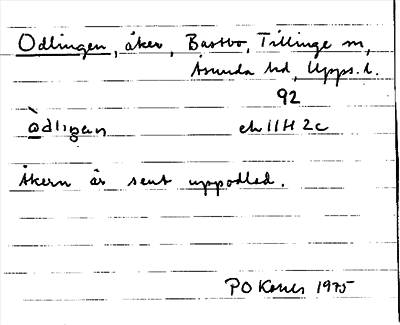 Odlingen, åker, Bastbo, Tillinge sn,
Åsunda hd, Upps. l.
92
òdlıgän
ek 11H 2c
Åkern är sent uppodlad.
PO 1975